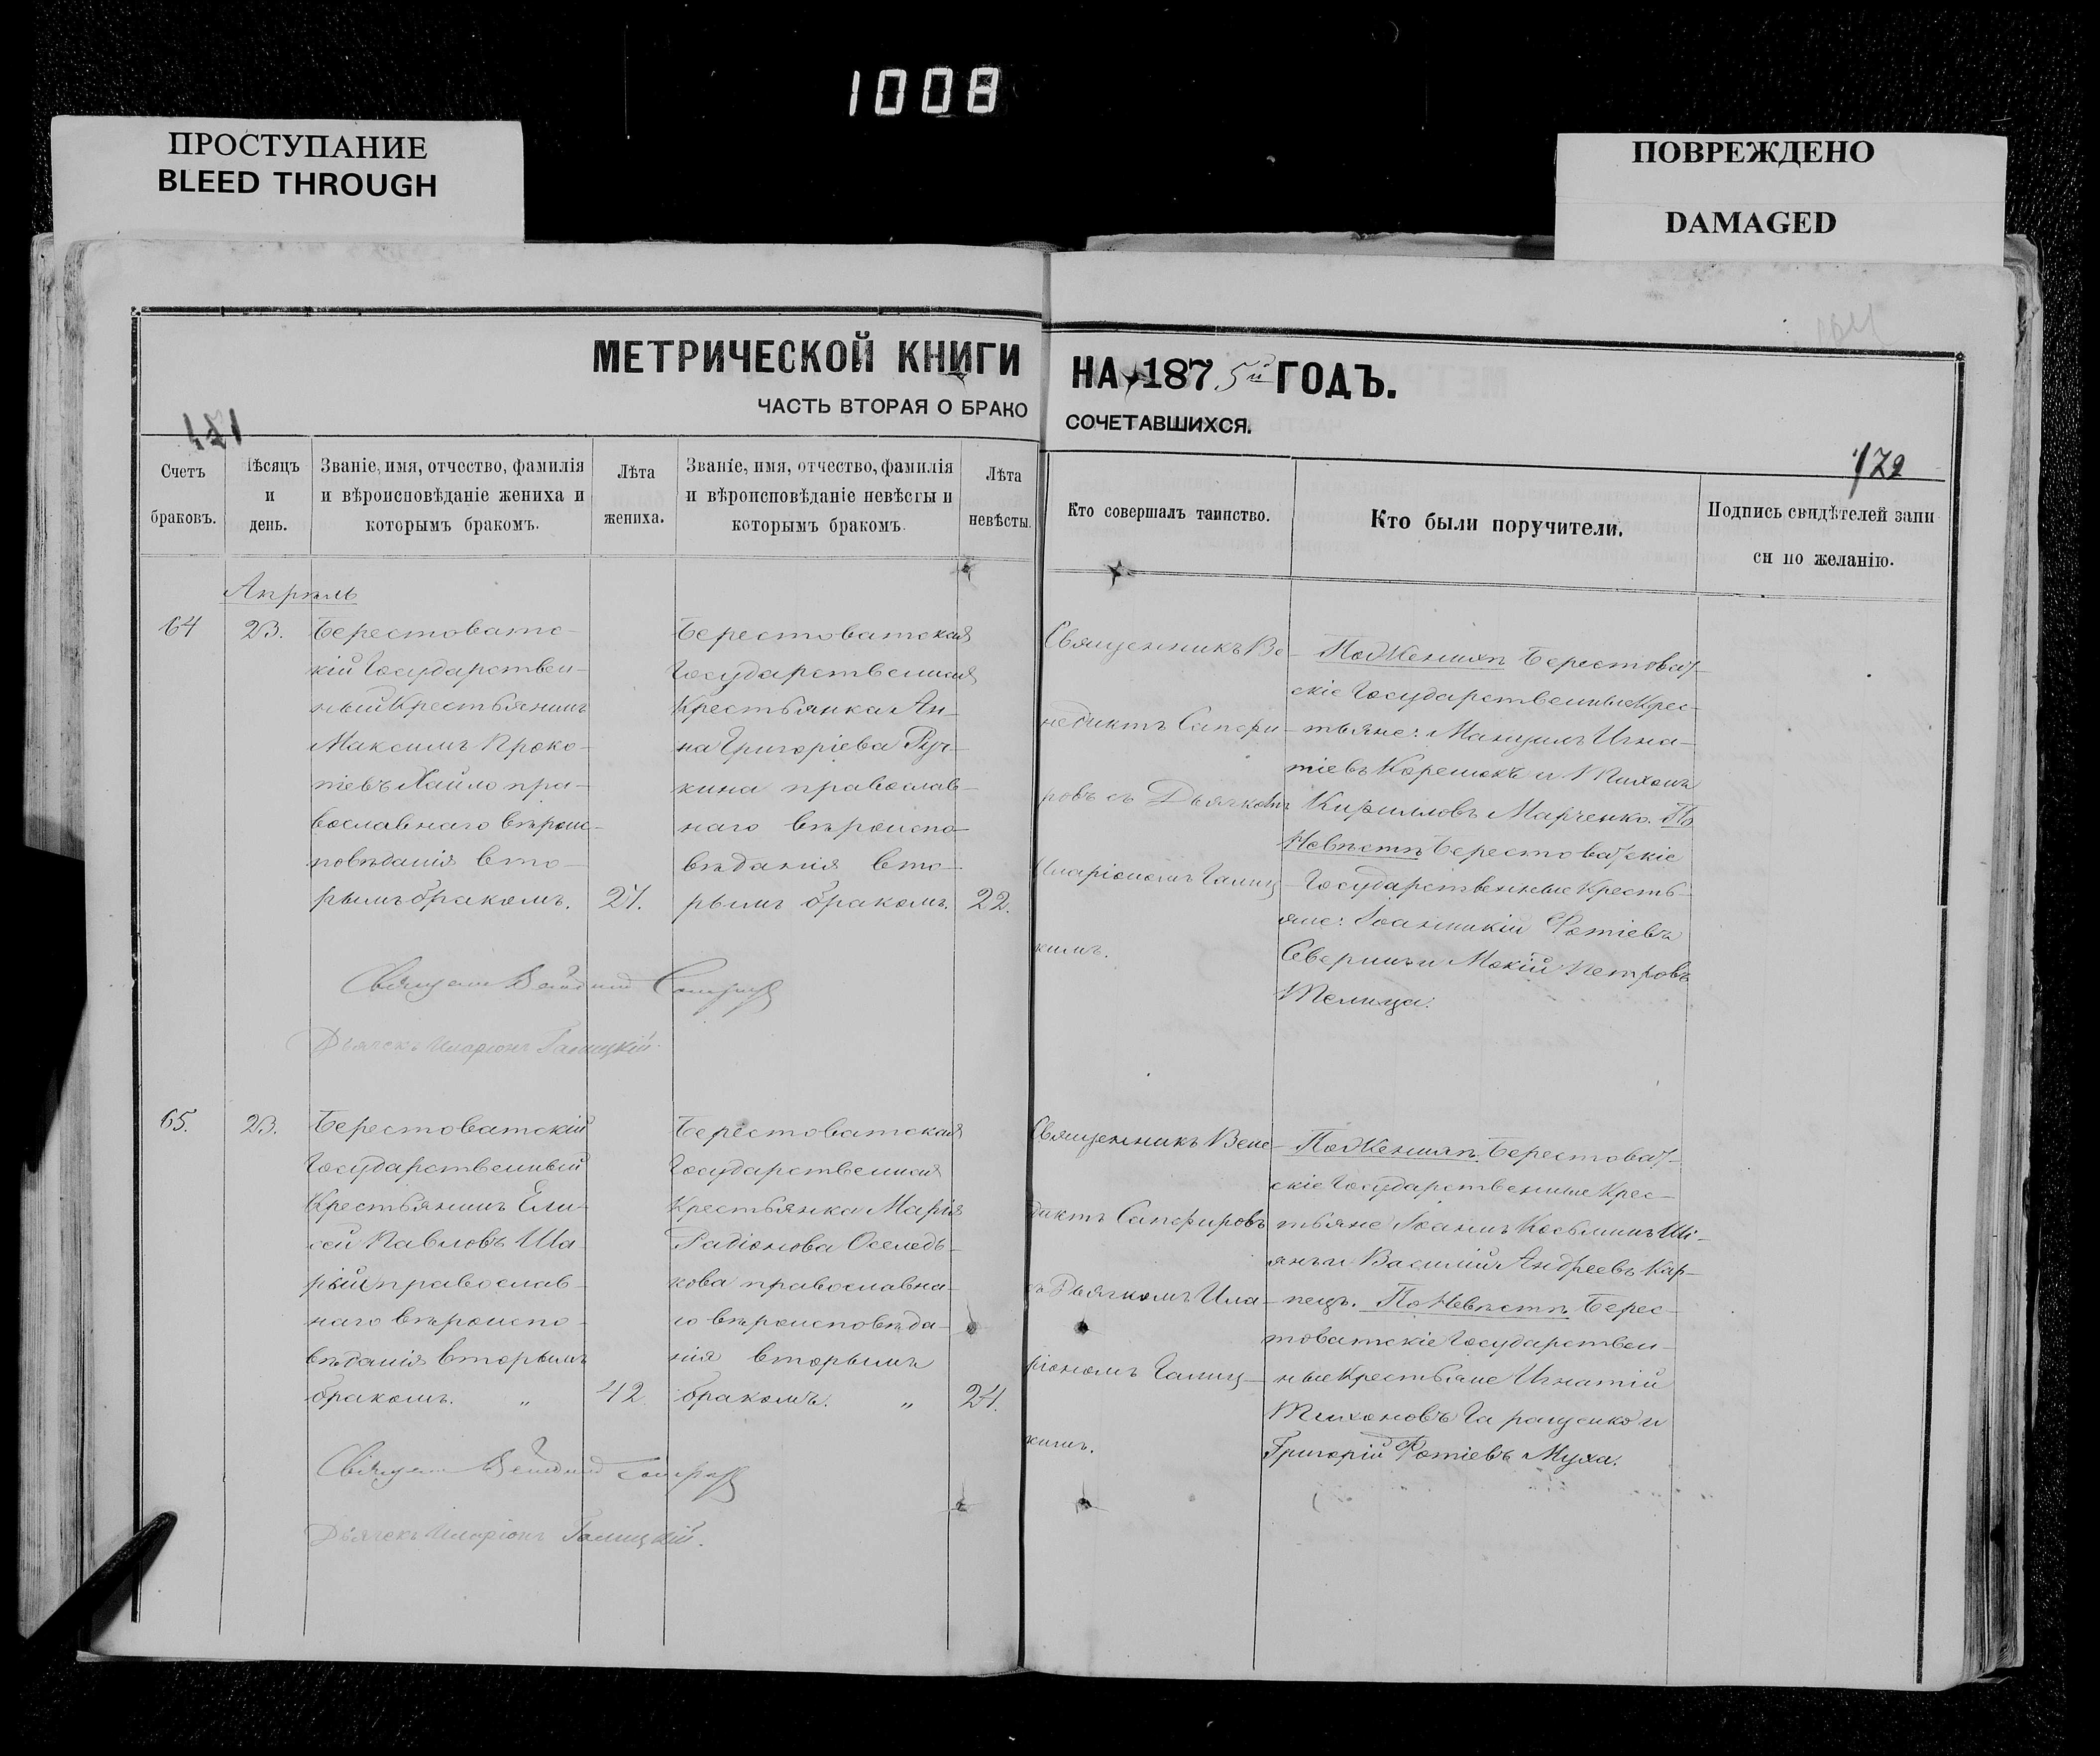 1008
ПРОСТУПАНИЕ
BLEED THROUGH
ПОВРЕЖДЕНО
DAMAGED
МЕТРИЧЕСКОЙ КНИГИ НА 1875й ГОДЪ.
ЧАСТЬ ВТОРАЯ О БРАКО
СОЧЕТАВШИХСЯ.
172
Счетъ
браковъ.
Мѣсяцъ
и
день.
Званіе, имя, отчество, фамилія
и вѣроисповѣданіе жениха и
которымъ бракомъ.
Лѣта
жениха.
Званіе, имя, отчество, фамилія
и вѣроисповѣданіе невѣсты и
которымъ бракомъ.
Лѣта
невѣсты.
Кто совершалъ таинство.
Кто были поручители.
Подпись свидѣтелей запи
си по желанію.
Апрѣль
64
23.
Берестоватс-
кій Государствен-
ный Крестьянинъ
Максимъ Проко-
піевъ Хайло пра-
вославнаго вѣроис-
повѣданія вто-
рымъ бракомъ.
24.
Берестоватская
Государственная
Крестьянка Ан-
на Григоріева Руч-
кина православ-
наго вѣроиспо-
вѣданія вто-
рымъ бракомъ.
22.
Священникъ Ве-
недиктъ Сапфи-
ровъ съ Дьячкомъ
Иларіономъ Галиц-
кимъ.
По Женихѣ Берестоват-
скіе Государственные Крес-
тьяне: Мануилъ Игна-
тіевъ Корешокъ и Тихонъ
Кирилловъ Марченко. По
Невѣстѣ Берестоватскіе
Государственные Кресть-
яне: Іоанникій Фотіевъ
Сѣверинъ и Мокій Петровъ
Телица.
Священникъ Венедиктъ Сапфировъ
Дьячекъ Иларіонъ Галицкій.
65.
23.
Берестоватскій
Государственный
Крестьянинъ Ели-
сей Павловъ Ша-
рый православ-
наго вѣроиспо-
вѣданія вторымъ
бракомъ. „
42
Берестоватская
Государственная
Крестьянка Марія
Радіонова Оселедь-
кова православна-
го вѣроисповѣда-
нія вторымъ
бракомъ. „
24.
Священникъ Вене-
диктъ Сапфировъ
съ Дьячкомъ Ила-
ріономъ Галиц-
кимъ.
По Женихѣ Берестоват-
скіе Государственные Крес-
тьяне Іоаннъ Косьминъ Ші-
янъ и Василій Андреевъ Кар-
пецъ. По Невѣстѣ Берес-
товатскіе Государствен-
ные Крестьяне Игнатій
Тихоновъ Гаращенко и
Григорій Фотіевъ Муха.
Священникъ Венедиктъ Сапфировъ
Дьячекъ Иларіонъ Галицкій.